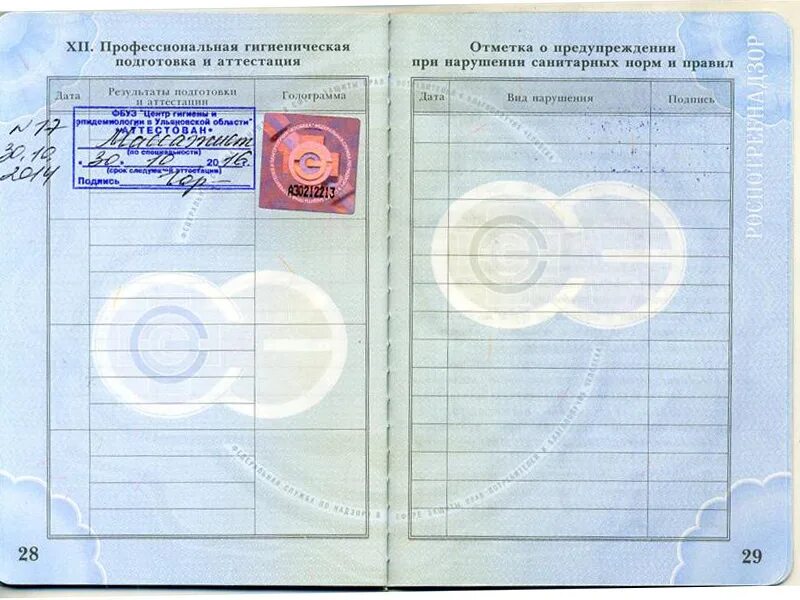 XII. Профессиональная гигиеническая
подготовка и аттестация
Дата
Результаты подготовки
и аттестации
Голограмма
N 17
30.10.
2014
ФБУЗ "Центр гигиены и
эпидемиологии в Ульяновской области"
"АТТЕСТОВАН"
Массажист
(по специальности)
30. 10 2016.
(срок следующей аттестации)
Подпись
А30212213
28
Отметка о предупреждении
при нарушении санитарных норм и правил
Дата
Вид нарушения
Подпись
РОСПОТРЕБНАДЗОР
ФЕДЕРАЛЬНАЯ СЛУЖБА ПО НАДЗОРУ В СФЕРЕ ЗАЩИТЫ ПРАВ ПОТРЕБИТЕЛЕЙ И БЛАГОПОЛУЧИЯ ЧЕЛОВЕКА
29